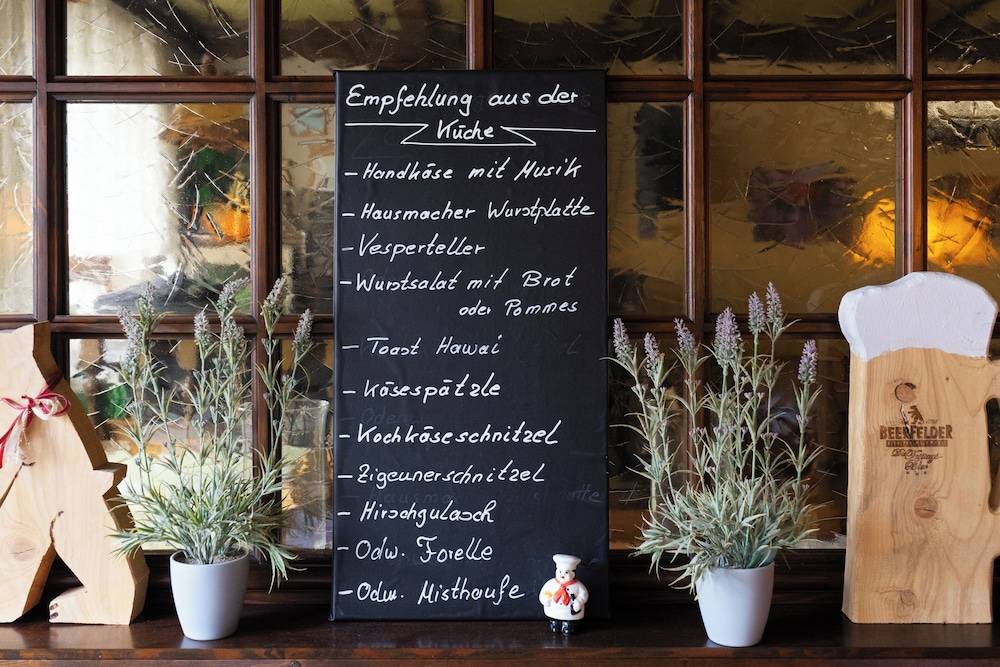 Empfehlung aus der
Küche
- Handkäse mit Musik
- Hausmacher Wurstplatte
- Vesperteller
- Wurstsalat mit Brot
oder Pommes
- Toast Hawai
- Käsespätzle
- Kochkäseschnitzel
- Zigeunerschnitzel
- Hirschgulasch
- Odw. Forelle
- Odw. Misthaufe
BEERFELDER